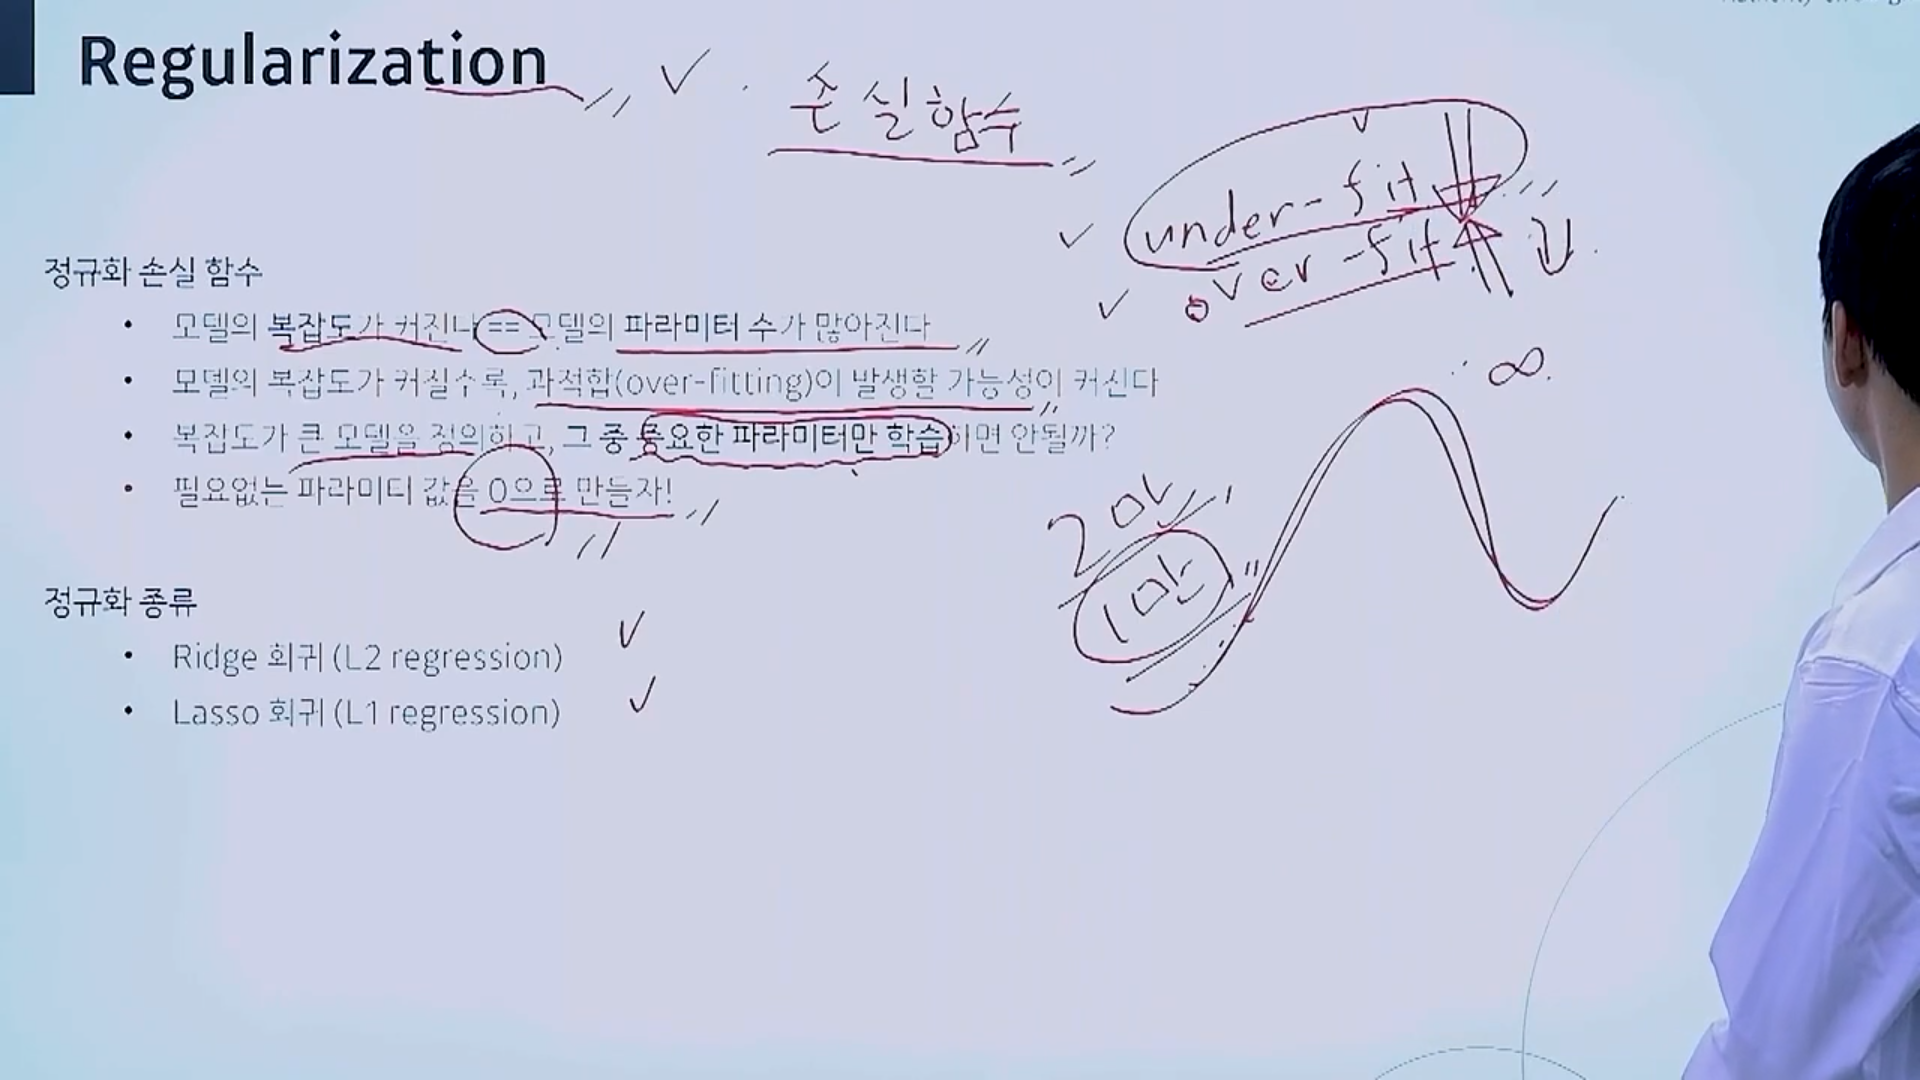 Regularization
손실함수
under-fit
over-fit
정규화 손실 함수
• 모델의 복잡도가 커진다 == 모델의 파라미터 수가 많아진다
• 모델의 복잡도가 커질수록, 과적합(over-fitting)이 발생할 가능성이 커진다
• 복잡도가 큰 모델을 정의하고, 그 중 중요한 파라미터만 학습하면 안될까?
• 필요없는 파라미터 값을 0으로 만들자!
∞
2만
1만
정규화 종류
• Ridge 회귀 (L2 regression)
• Lasso 회귀 (L1 regression)